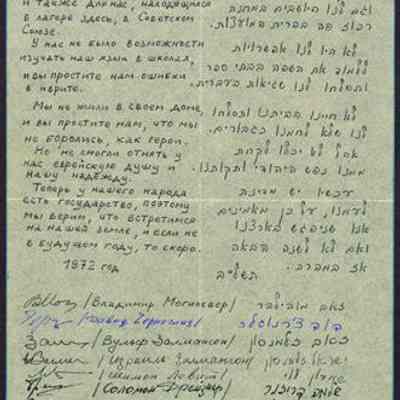 и также для нас, находящихся
в лагере здесь, в Советском
Союзе.
У нас не было возможности
изучать наш язык в школах,
и вы простите нам ошибки
в иврите.
Мы не жили в своем доме,
и вы простите нам, что мы
не боролись, как герои.
Но не смогли отнять у
нас еврейскую душу и
нашу надежду.
Теперь у нашего народа
есть государство, поэтому
мы верим, что встретимся
на нашей земле, и если не
в будущем году, то скоро.
1972 год
וגם לנו היושבים במחנה
בברית המועצות.
לא היו לנו אפשרויות
ללמוד את השפה בבתי ספר
ותסלחו לנו שגיאות בעברית.
לא חיינו בביתנו ותסלחו
לנו שלא לחמנו כגבורים.
אבל לא יכלו לקחת
ממנו נפש יהודי ותקותנו.
עכשיו יש מדינה
לעמנו, על כן מאמינים
אנו שניפגש בארצנו
ואם לא לשנה הבאה
אז במהרה.
תשל״ב
/Владимир Могилевер/
/Вульф Залмансон/
/Израиль Залмансон/
/Шимон Левит/
/Соломон Дрейзнер/
זאב מוגילבר
זאב זלמנסון
ישראל זלמנסון
שמעון לוי